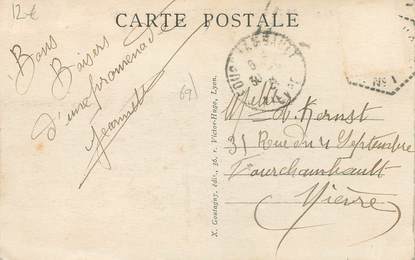 12 €
CARTE POSTALE
Bons
Baisers
d'une promenade
Jeannette
69)
X. Goutagny, édit., 36, r. Victor-Hugo, Lyon.
N° 1
A. Kernst
31 Rue du 4 Septembre
Fourchambault
Nièvre